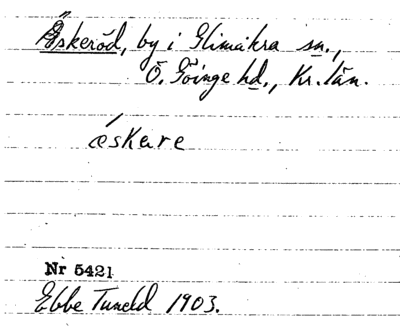 Äskeröd, by i Glimåkra sn.,
Ö. Göinge hd., Kr. län.
ǽskare
Nr 5421
Ebbe Tuneld 1903.